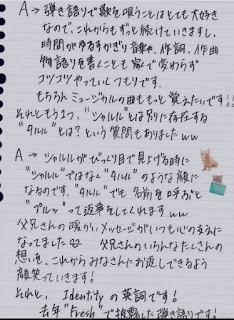 A→ 弾き語りで歌を唄うことはとても大好き
なので、これからもずっと続けていきますし、
時間がゆるすかぎり音楽や、作詞、作曲
物語りを書くことも 変わらず
コツコツやっていくつもりです。
もちろんミュージカルの曲ももっと覚えたいです!
それともう1つ、"シャルルとは別に存在する
"タルル"とは?という質問もありましたww
A→ シャルルがびっくり目で見上げる時に
"シャルル"ではなく"タルル"のような敵に
なるのです。"タルル"でも名前を呼ぶと
"プルッ"って返事をしてくれますww
父兄さんの暖かいメッセージがいつも心の支えに
なってました 父兄さんのいろんなたくさんの
想いを、これからみなさんにお返しできるよう
顔笑っていきます!
それと、Identityの英詞です!
去年"Fresh"で披露した弾き語りです!